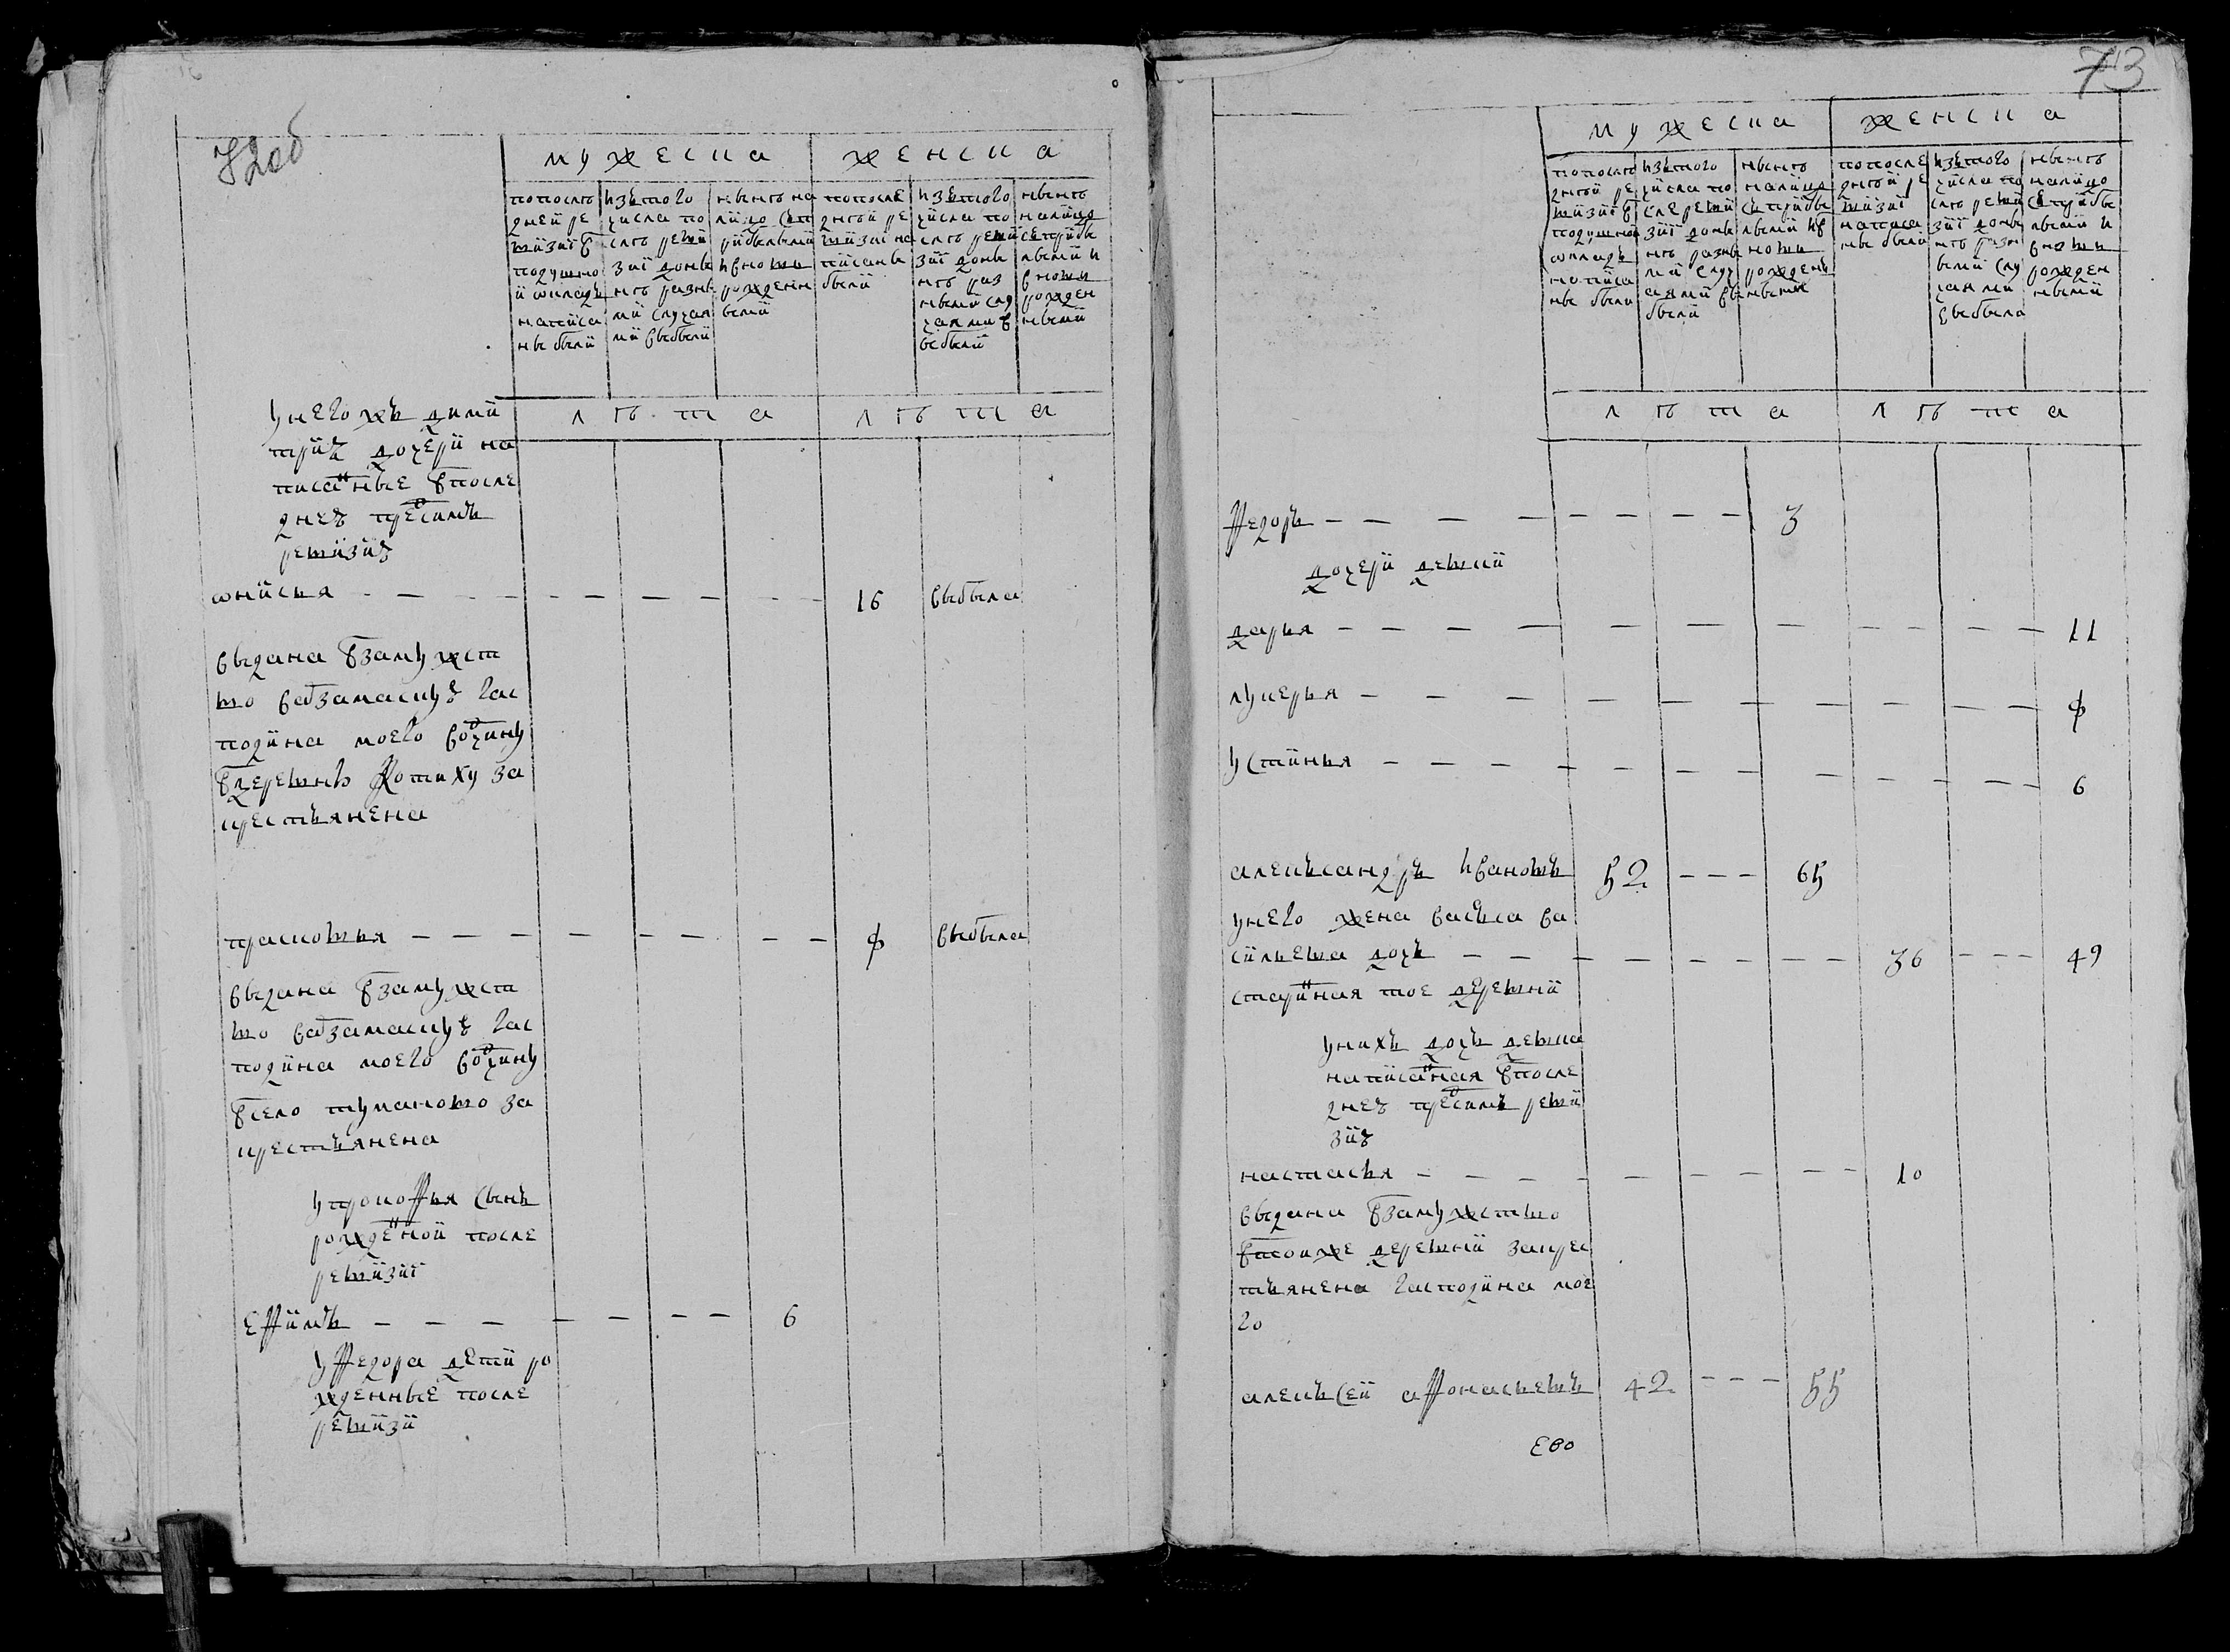 72об
мужеска женска
попосле
дней ре
визиі в
подушно
й окладъ
написа
ны были
изътого
числа по
слѣ реви
зиі доны
нѣ разны
ми случая
ми выбыли
нынѣ на
лицо сп
рибылыми
ивновь
рожденн
ыми
попосле
днѣй ре
визиі на
писаны
были
изътого
числа по
слѣ реви
зиі доны
нѣ раз
ными слу
чаями в
ыбыли
нынѣ
налицо
сприбы
лыми и
вновь
рожден
ными
лѣта лѣта
унего жъ дими
трия дочери на
писанные впосле
дней пред симъ
ревизии
онисья 16 выбыла
выдана взамужст
во варзамаскую гос
подина моего вотчину
вдеревнѣ Котиху за
крестьянена
прасковья ф выбыла
выдана взамужст
во варзамаскую гос
подина моего вотчину
всело туманово за
крестьянена
упрокофья сынъ
рожденной после
ревизиі
Ефимъ 6
уфедора дети ро
жденные после
ревизи
73
мужеска женска
попослѣ
днѣй ре
визиі в
подушной
окладъ
написа
ны были
изътого
числа по
сле реви
зиі доны
нѣ разны
ми случ
аями вы
были
нынѣ
налицо
сприбы
лыми ив
новь
рожденъ
ными
попосле
днѣй ре
визиі
написа
ны были
изътого
числа по
слѣ реви
зиі доны
нѣ разн
ыми слу
чаями
выбыли
нынѣ
налицо
сприбы
лыми и
вновь
рожден
ными
лѣта лѣта
Федоръ 3
дочери девки
дарья 11
лукерья ф
устинья 6
алекъсандръ ивановъ 52 65
унего жена васъса ва
сильева дочь 36 49
старинная тое деревни
унихъ дочь девка
написанная впосле
дней пред симъ реви
зии
настасья 10
выдана взамужство
втойже деревни закрес
тьянена гасподина мое
го
алекъсей афонасьевъ 42 55
Ево